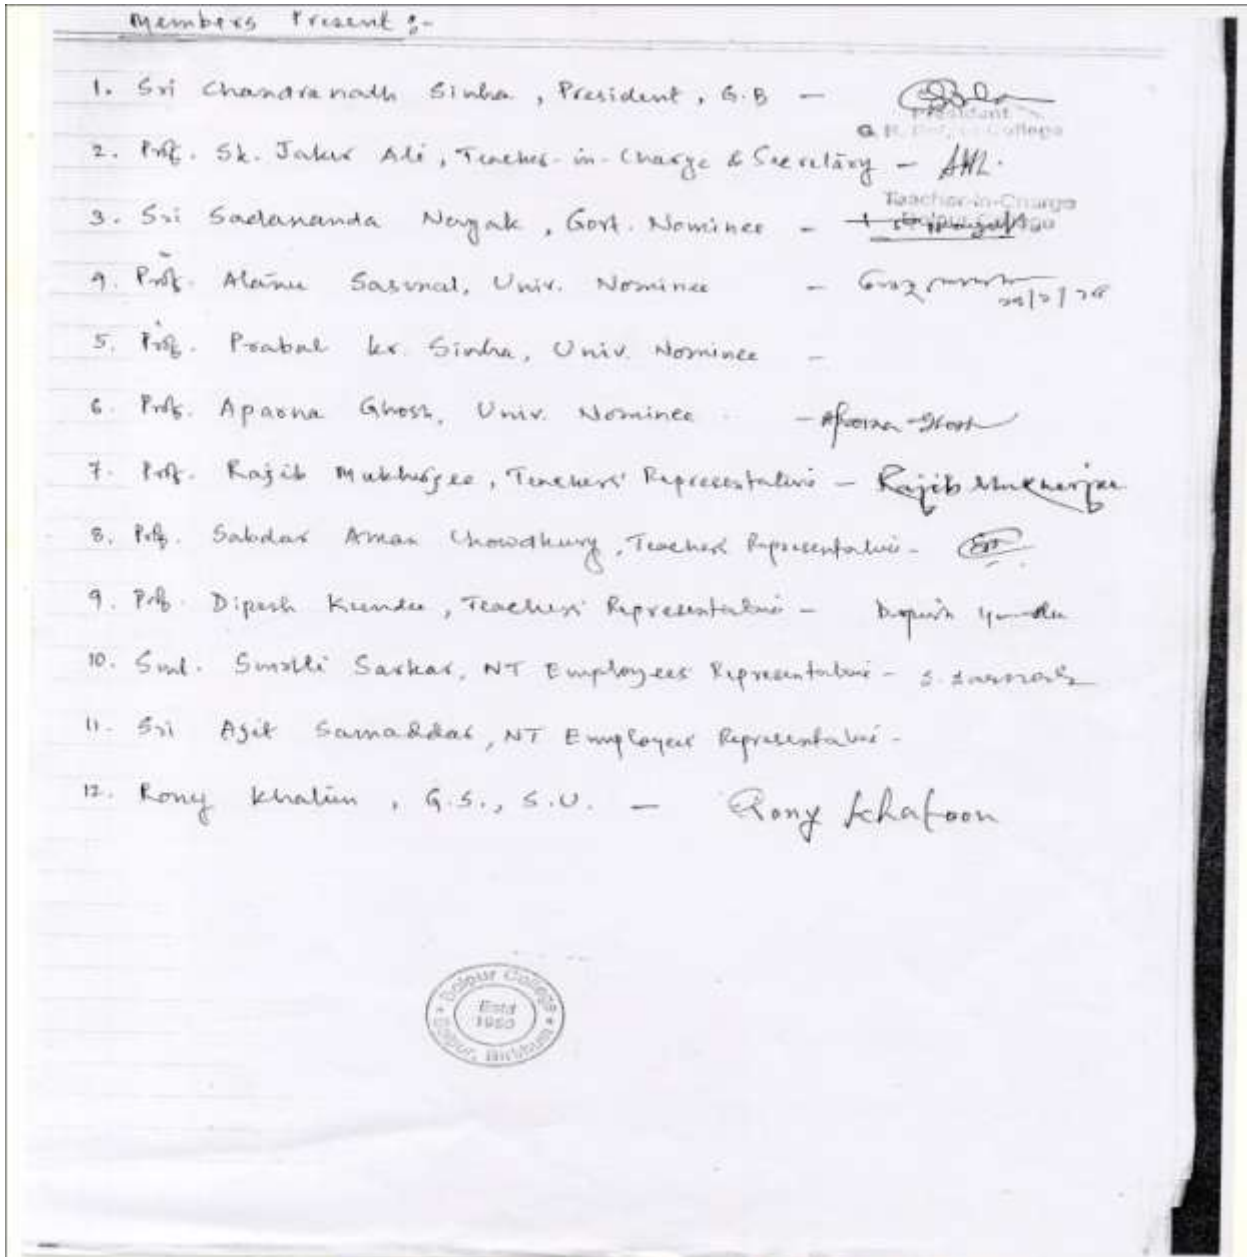 Members Present :-
1. Sri Chandranath Sinha, President, G.B -
President
G.B. Bolpur College
2. Prof. Sk. Jakir Ali, Teacher-in-Charge & Secretary -
Teacher-in-Charge
Bolpur College
3. Sri Sadananda Nayak, Govt. Nominee -
4. Prof. Sasmal, Univ. Nominee -
5. Prof. Prabal kr. Sinha, Univ. Nominee -
6. Prof. Aparna Ghosh, Univ. Nominee - Aparna Ghosh
7. Prof. Rajib Mukherjee, Teachers' Representative - Rajib Mukherjee
8. Prof. Sabdar Aman Chowdhury, Teachers Representative -
9. Prof. Dipesh Kundu, Teachers' Representative - Dipesh Kundu
10. Smt. Sarkar, NT Employees' Representative -
11. Sri Ajit Samaddar, NT Employees Representative -
12. Rony Khatun, G.S., S.U. - Rony Khatoon
Bolpur College
Estd
1950
Bolpur, Birbhum